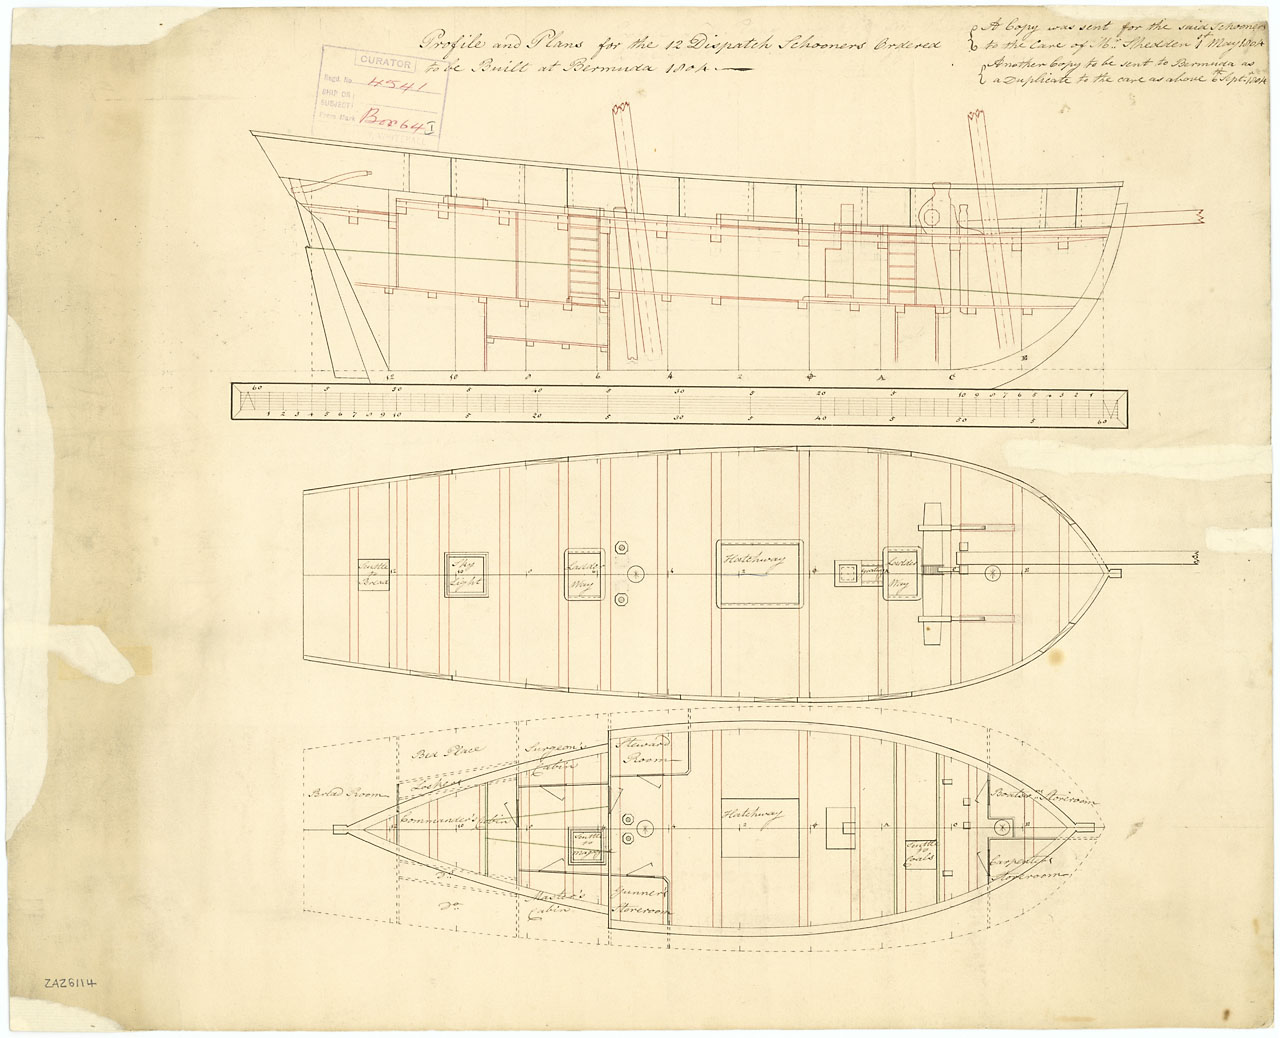 Profile and Plans for the 12 Dispatch Schooners Ordered
to be Built at Bermuda 1804.
A Copy was sent for the said Schooners
to the Care of Mr. Shedden 1st May 1804
Another Copy to be sent to Bermuda as
a Duplicate to the care as above 6th Sept. 1804
CURATOR
Regd. No. 4541
SHIP OR
SUBJECT
Press Mark Box 64 I
12 10 8 6 4 2 A C E
60 5 50 5 40 5 30 5 20 5 10 9 8 7 6 5 4 3 2 1
1 2 3 4 5 6 7 8 9 10 5 20 5 30 5 40 5 50 5 60
Scuttle
to
Bread
Sky
Light
Ladder
Way
Hatchway
Ladder
Way
Bread Room
Bed Place
Lockers
Commander's Cabin
Do
Do
Surgeon's
Cabin
Master's
Cabin
Scuttle
to
Magaz
Steward
Room
Gunner's
Storeroom
Hatchway
Scuttle
to
Coals
Boatsn. Storeroom
Carpenters
Storeroom
ZAZ6114